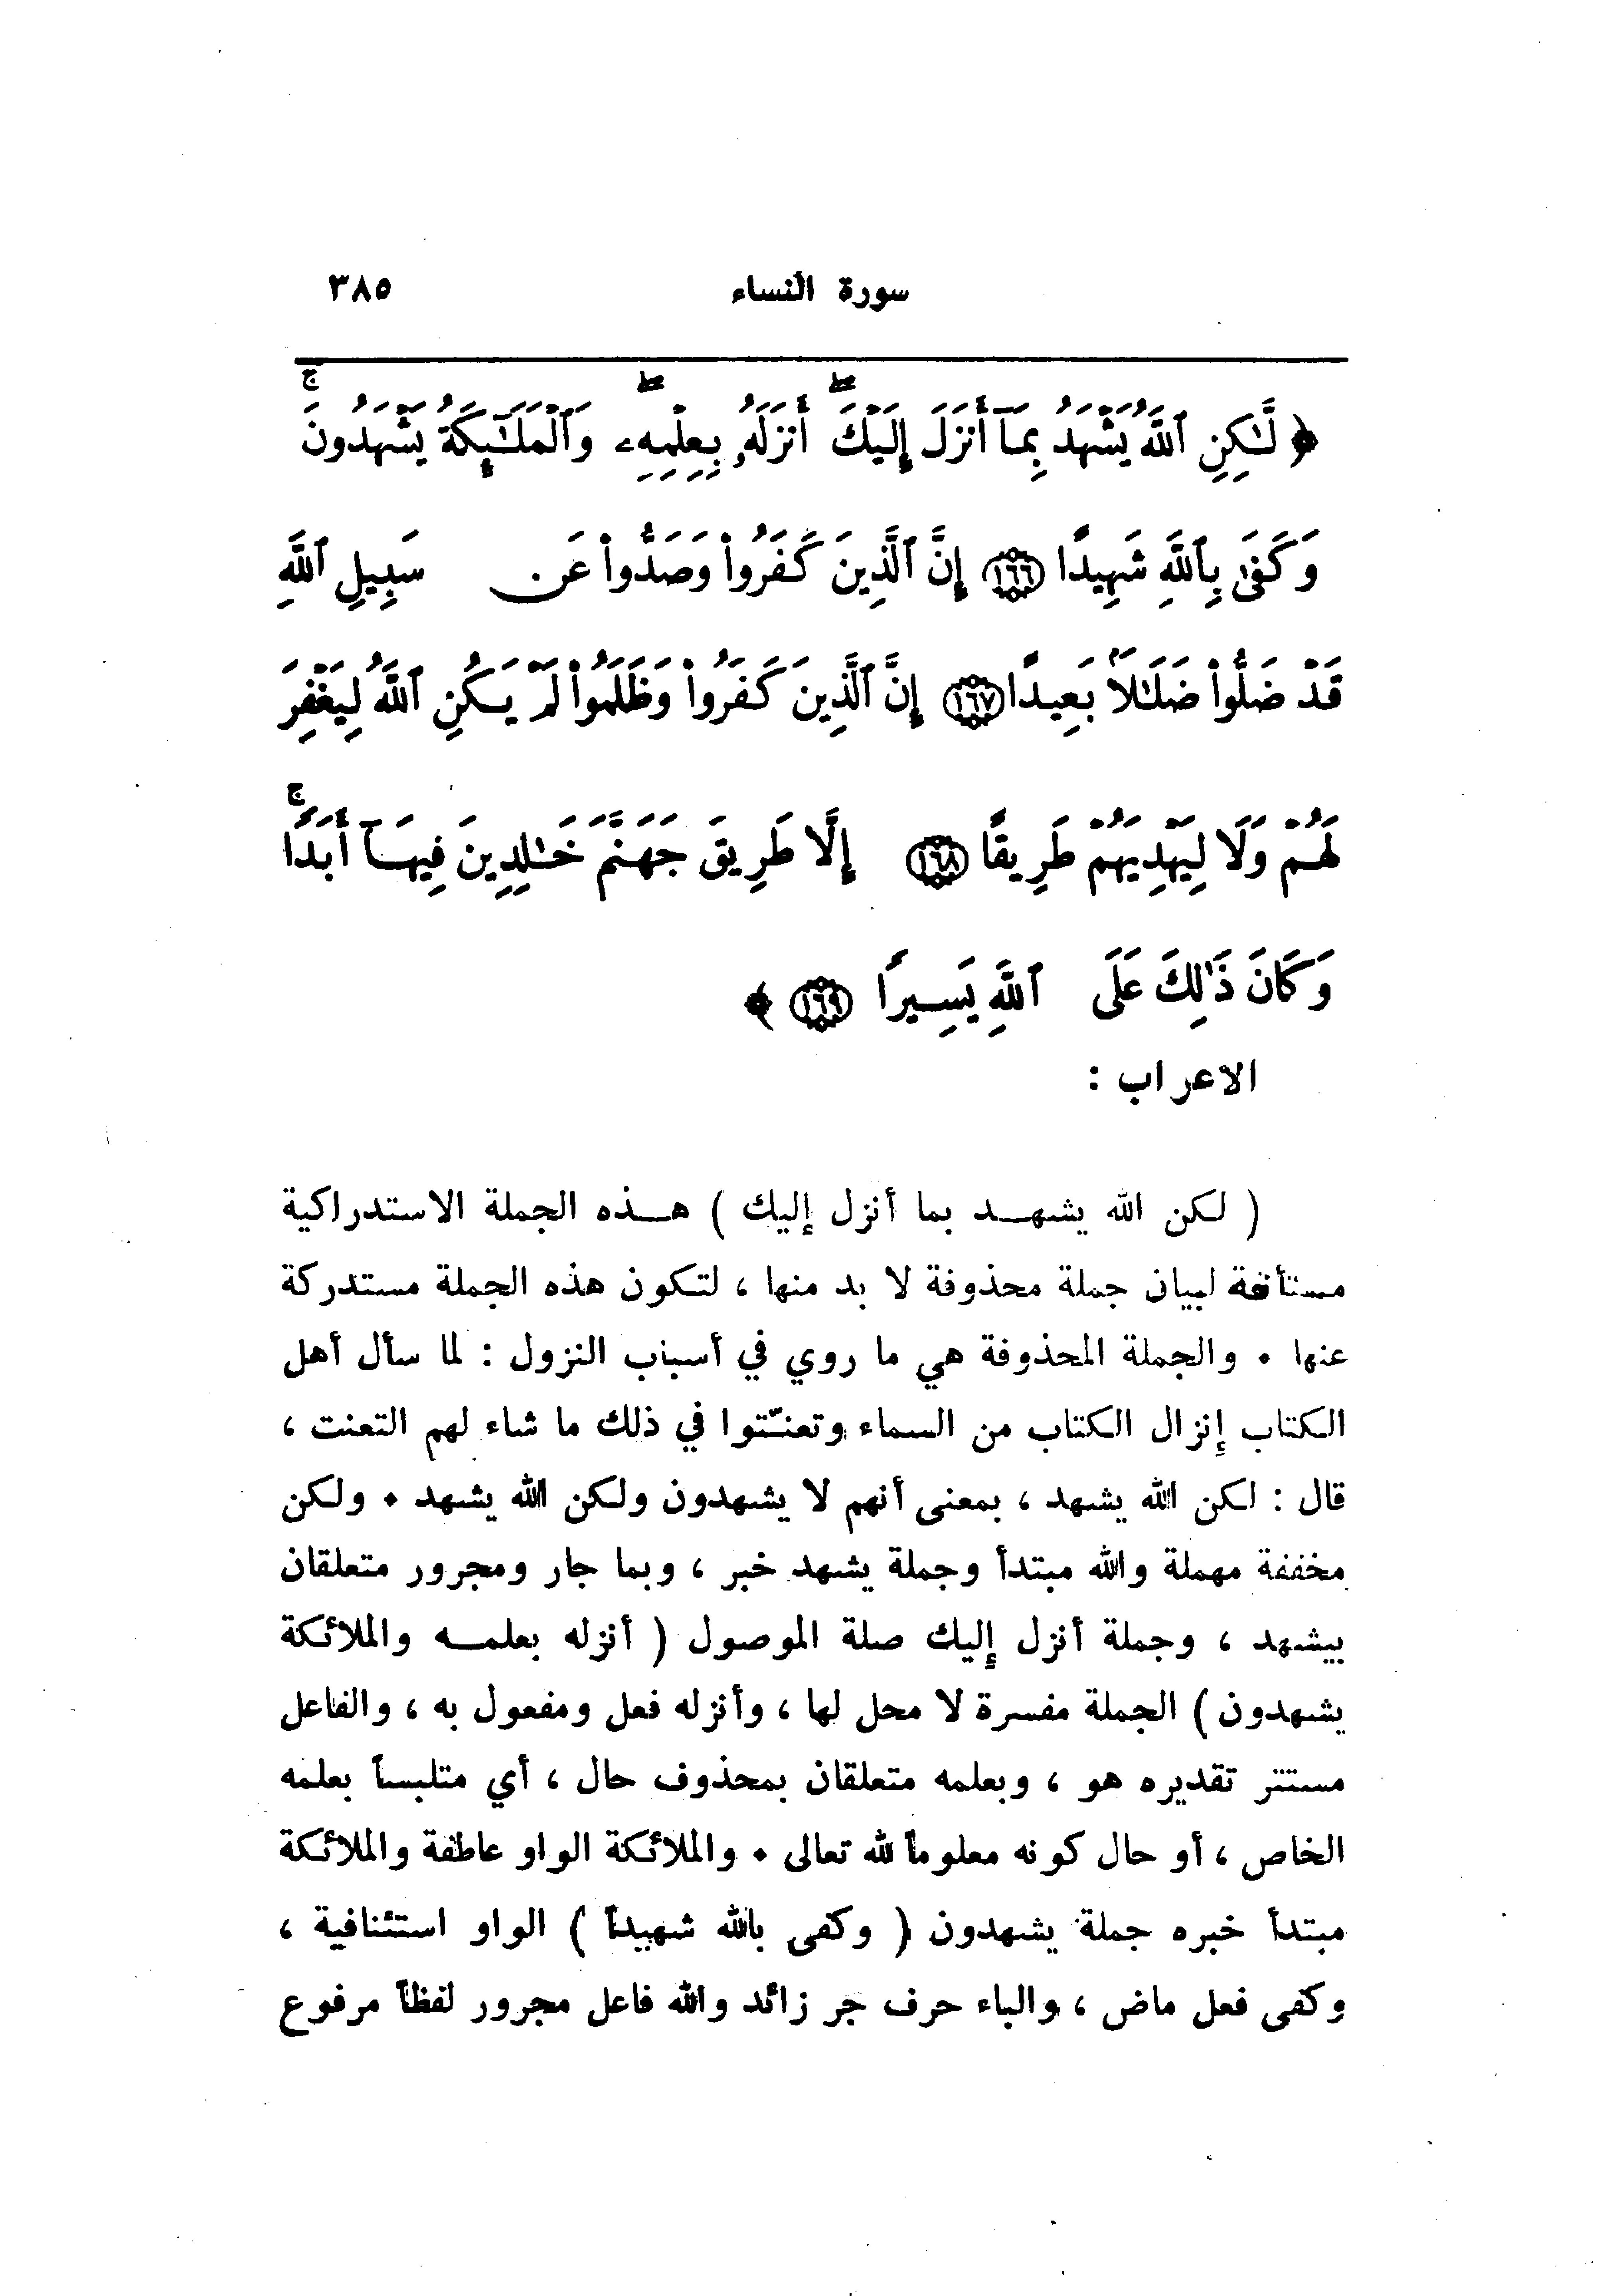 سورة النساء ٣٨٥
﴿ لَّـٰكِنِ ٱللَّهُ يَشْهَدُ بِمَآ أَنزَلَ إِلَيْكَ ۖ أَنزَلَهُۥ بِعِلْمِهِۦ ۖ وَٱلْمَلَـٰٓئِكَةُ يَشْهَدُونَ ۚ
وَكَفَىٰ بِٱللَّهِ شَهِيدًا ١٦٦ إِنَّ ٱلَّذِينَ كَفَرُوا۟ وَصَدُّوا۟ عَن سَبِيلِ ٱللَّهِ
قَدْ ضَلُّوا۟ ضَلَـٰلًۢا بَعِيدًا ١٦٧ إِنَّ ٱلَّذِينَ كَفَرُوا۟ وَظَلَمُوا۟ لَمْ يَكُنِ ٱللَّهُ لِيَغْفِرَ
لَهُمْ وَلَا لِيَهْدِيَهُمْ طَرِيقًا ١٦٨ إِلَّا طَرِيقَ جَهَنَّمَ خَـٰلِدِينَ فِيهَآ أَبَدًا ۚ
وَكَانَ ذَٰلِكَ عَلَى ٱللَّهِ يَسِيرًا ١٦٩ ﴾
الاعراب :
( لكن الله يشهـــد بما أنزل إليك ) هـــذه الجملة الاستدراكية
مستأنفة لبيان جملة محذوفة لا بد منها ، لتكون هذه الجملة مستدركة
عنها • والجملة المحذوفة هي ما روي في أسباب النزول : لما سأل أهل
الكتاب إنزال الكتاب من السماء وتعنّتوا في ذلك ما شاء لهم التعنت ،
قال : لكن الله يشهد ، بمعنى أنهم لا يشهدون ولكن الله يشهد • ولكن
مخففة مهملة والله مبتدأ وجملة يشهد خبر ، وبما جار ومجرور متعلقان
بيشهد ، وجملة أنزل إليك صلة الموصول ( أنزله بعلمـــه والملائكة
يشهدون ) الجملة مفسرة لا محل لها ، وأنزله فعل ومفعول به ، والفاعل
مستتر تقديره هو ، وبعلمه متعلقان بمحذوف حال ، أي متلبساً بعلمه
الخاص ، أو حال كونه معلوماً لله تعالى • والملائكة الواو عاطفة والملائكة
مبتدأ خبره جملة يشهدون ( وكفى بالله شهيداً ) الواو استئنافية ،
وكفى فعل ماض ، والباء حرف جر زائد والله فاعل مجرور لفظاً مرفوع